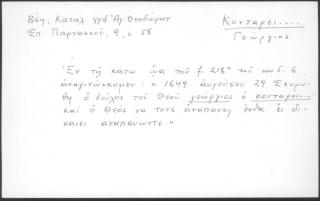 Βέη, Καταλ χγφ Αγ Θεοδώρων
Επ. Παρνασσού, 9, σ 58
Κονταρει....
Γεώργιος
"Εν τη κατω ώα του f. 218ª του κωδ. 6
αναγινώσκομεν: ο 1649 αυγούστου 29 Εκυμύ
θη ο δούλος του Θεού γεώργιος ο κονταρει...
και ο Θεός να τονε αναπαυση ένθα ει δι
καιει αναπαύωντε"